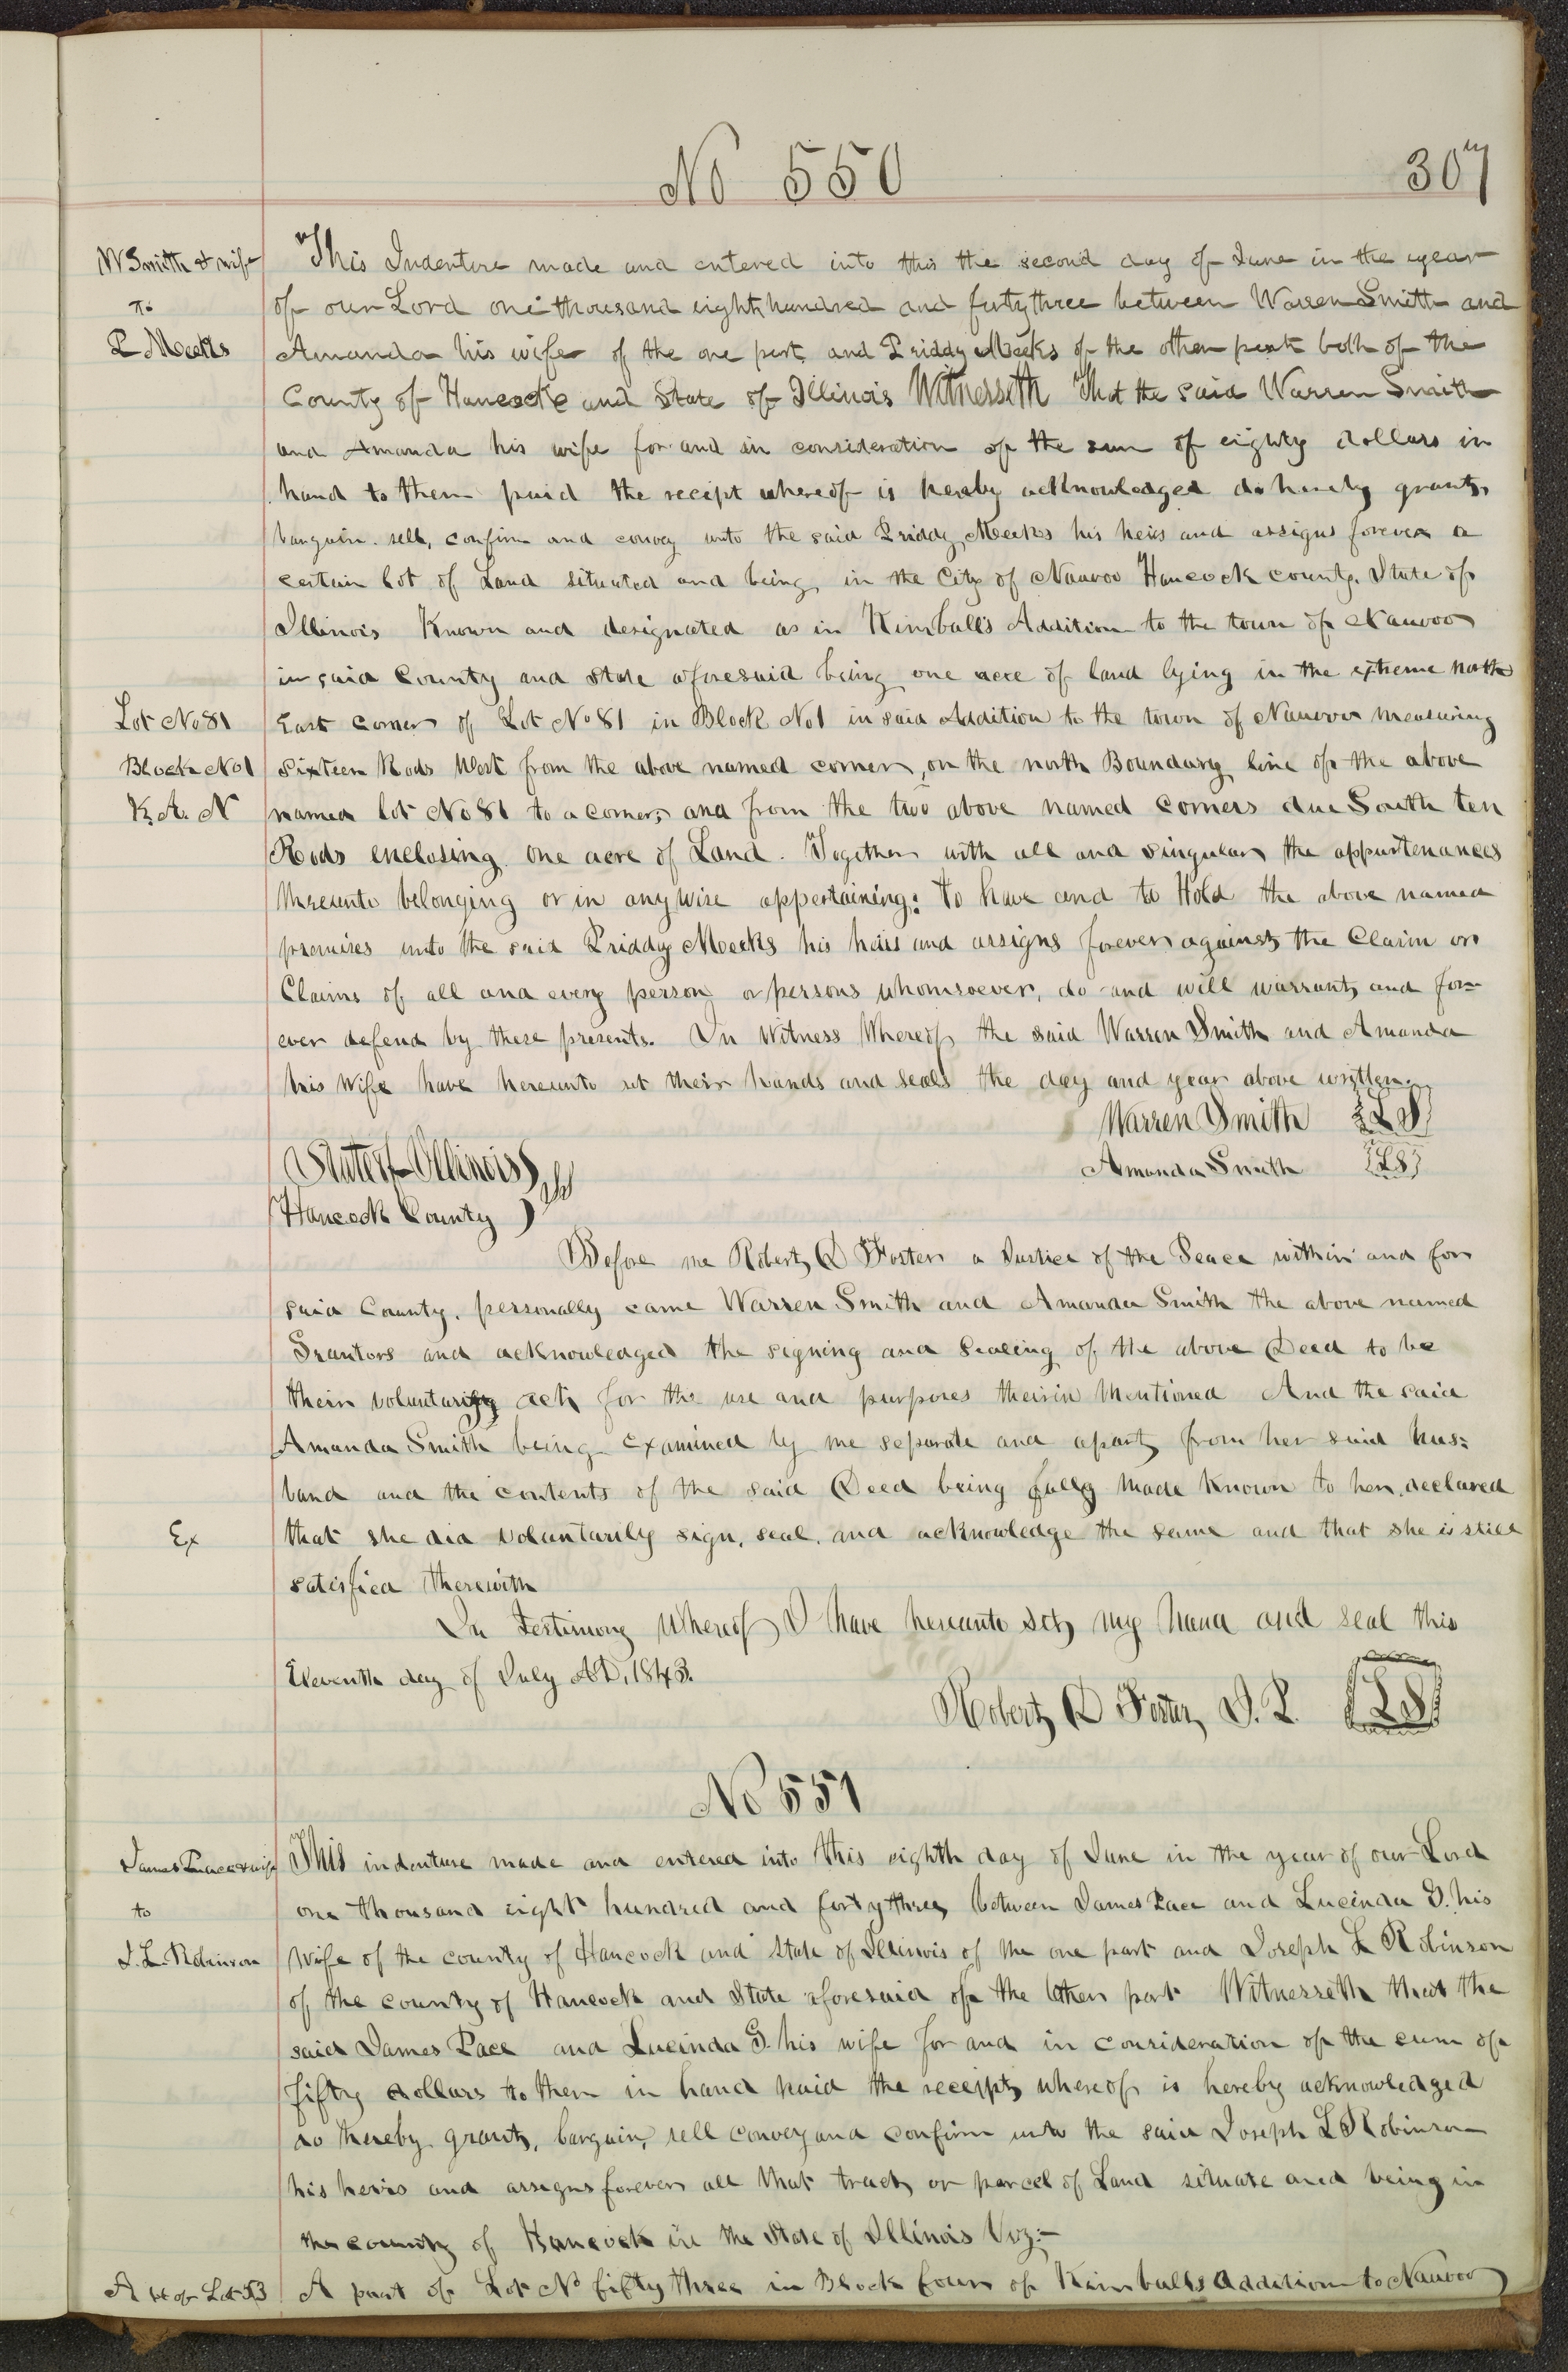 No 550
307
W Smith & wife
to
P Meeks
This Indenture made and entered into this the second day of June in the year
of our Lord one thousand eight hundred and forty three between Warren Smith and
Amanda his wife of the one part and Priddy Meeks of the other part both of the
County of Hancock and State of Illinois Witnesseth That the said Warren Smith
and Amanda his wife for and in consideration of the sum of eighty dollars in
hand to them paid the receipt whereof is hereby acknowledged do hereby grant,
bargain. sell, confirm and convey unto the said Priddy Meeks his heirs and assigns forever a
certain lot of Land situated and being in the City of Nauvoo Hancock county. State of
Illinois Known and designated as in Kimball's Addition to the town of Nauvoo
in said County and State aforesaid being one acre of land lying in the extreme north
Lot No 81
East corner of Lot No 81 in Block No 1 in said Addition to the town of Nauvoo measuring
Block No 1
Sixteen Rods West from the above named corner, on the north Boundary line of the above
K. A. N
named lot No 81 to a corner, and from the two above named corners due South ten
Rods enclosing one acre of Land. Together with all and singular the appurtenances
thereunto belonging or in anywise appertaining: To have and to Hold the above named
premises unto the said Priddy Meeks his heirs and assigns forever against the Claim or
Claims of all and every person or persons whomsoever, do and will warrant, and for=
ever defend by these presents. In Witness Whereof the said Warren Smith and Amanda
his Wife have hereunto set their hands and seals the day and year above written.
Warren Smith LS
Amanda Smith LS
State of Illinois ss
Hancock County
Before me Robert D Foster a Justice of the Peace within and for
said County. personally came Warren Smith and Amanda Smith the above named
Grantors and acknowledged the signing and Sealing of the above Deed to be
their voluntary act for the use and purposes therein Mentioned And the said
Amanda Smith being Examined by me separate and apart from her said hus=
band and the contents of the said Deed being fully made Known to her, declared
Ex
that she did voluntarily sign, seal, and acknowledge the same and that she is still
satisfied therewith
In Testimony Whereof I have hereunto set my hand and seal this
Eleventh day of July AD, 1843.
Robert D Foster, J. P. LS
No 551
James Pace & wife
to
J. L. Robinson
This indenture made and entered into this eighth day of June in the year of our Lord
one thousand eight hundred and forty three, between James Pace and Lucinda G. his
Wife of the county of Hancock and State of Illinois of the one part and Joseph L Robinson
of the county of Hancock and State aforesaid of the other part Witnesseth that the
said James Pace and Lucinda G. his wife for and in consideration of the sum of
fifty dollars to them in hand paid the receipt, whereof is hereby acknowledged
do hereby grant, bargain, sell convey and confirm unto the said Joseph L Robinson
his heirs and assigns forever all that tract, or parcel of Land situate and being in
the county of Hancock in the State of Illinois Viz:-
A pt of Lot 53
A part of Lot No fifty three in Block four of Kimballs addition to Nauvoo